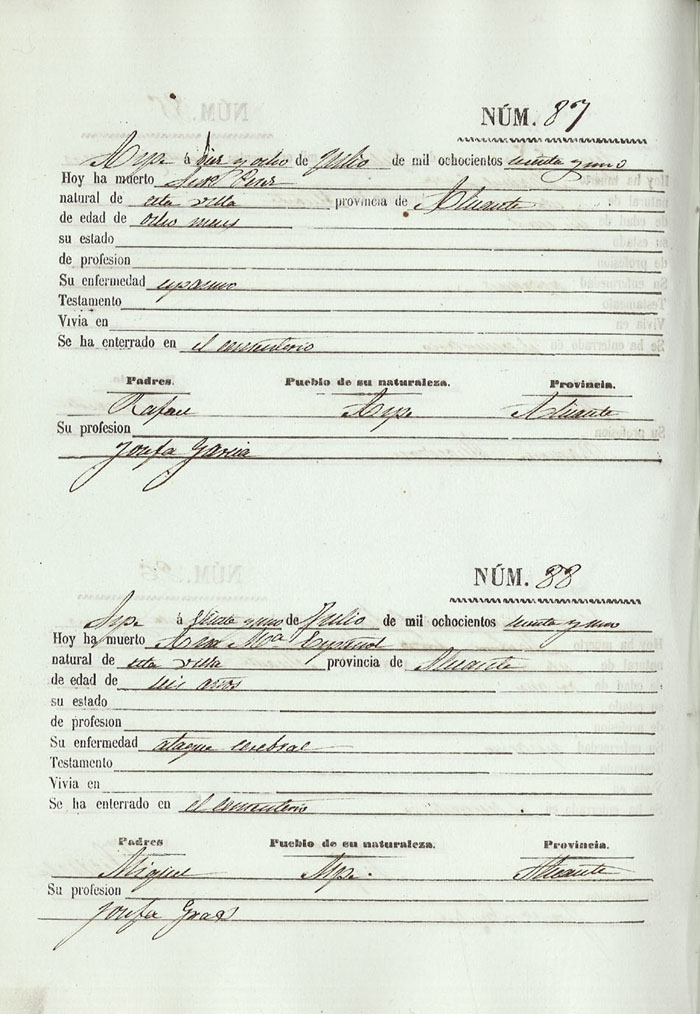 NÚM. 87
Aspe á diez y ocho de Julio de mil ochocientos setenta y uno
Hoy ha muerto Perez
natural de esta villa provincia de Alicante
de edad de ocho meses
su estado
de profesion
Su enfermedad espasmo
Testamento
Vivia en
Se ha enterrado en el cementerio
Padres. Pueblo de su naturaleza. Provincia.
Rafael Aspe Alicante
Su profesion
Josefa Garcia
NÚM. 88
Aspe á veinte y uno de Julio de mil ochocientos setenta y uno
Hoy ha muerto Ana Mª Español
natural de esta villa provincia de Alicante
de edad de seis años
su estado
de profesion
Su enfermedad ataque cerebral
Testamento
Vivia en
Se ha enterrado en el cementerio
Padres Pueblo de su naturaleza. Provincia.
Miguel Aspe Alicante
Su profesion
Josefa Gras